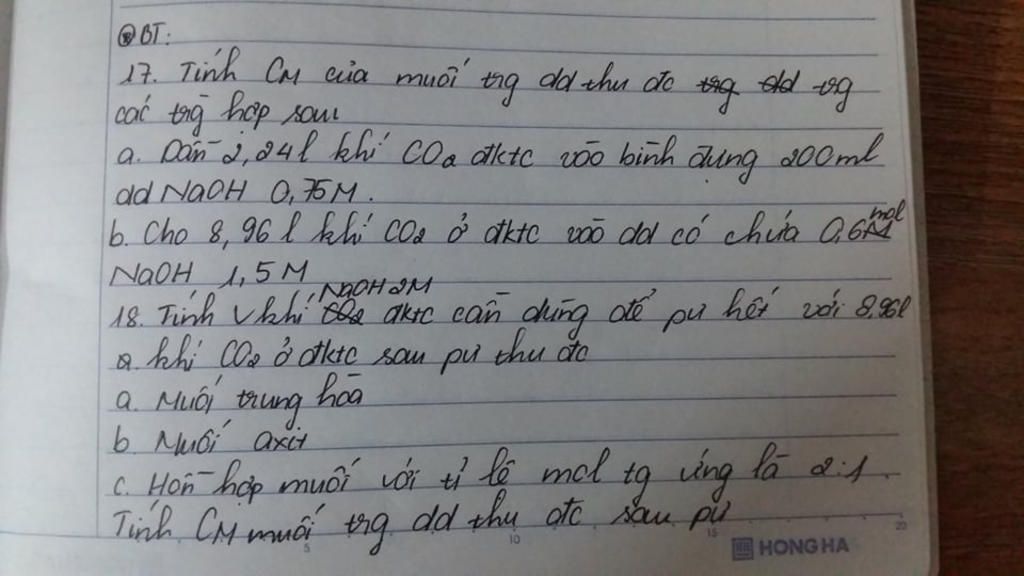 BT:
17. Tính CM của muối trg dd thu đc trg dd trg
các trg hợp sau
a. Dẫn 2,24l khí CO2 đktc vào bình đựng 200ml
dd NaOH 0,75M.
b. Cho 8,96l khí CO2 ở đktc vào dd có chứa 0,6M mol
NaOH 1,5M
NaOH 2M
18. Tính V khí CO2 đktc cần dùng để pư hết với 8,96l
khí CO2 ở đktc sau pư thu đc
a. Muối trung hoà
b Muối axit
c. Hỗn hợp muối với tỉ lệ mol tg ứng là 2:1.
Tính CM muối trg dd thu đc sau pư
5 10 15 20
HONG HA